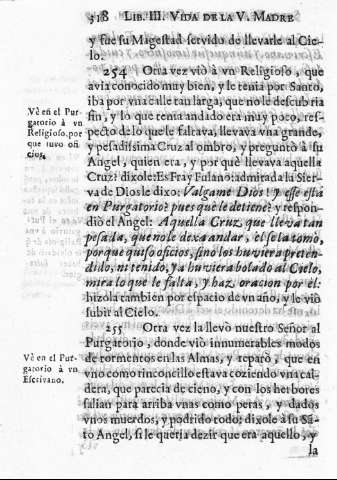 318 LIB. III. VIDA DE LA V. MADRE
y fue su Magestad servido de llevarle al Cie-
lo.
254 Otra vez viò à vn Religioso, que
avia conocido muy bien, y le tenia por Santo,
iba por vna calle tan larga, que no le descubria
fin, y lo que tenia andado era muy poco, res-
pecto de lo que le faltava, llevava vna grande,
y pesadissima Cruz al ombro, y preguntò à su
Angel, quien era, y por què llevava aquella
Cruz? dixole: Es Fray Fulano: admirada la Sier-
va de Dios le dixo: Valgame Dios! y esse està
en Purgatorio? pues què le detiene? y respon-
diò el Angel: Aquella Cruz que lleva tan
pesada, que no le dexa andar, èl se la tomò,
porque quiso oficios, si no los huviera preten-
dido, ni tenido, ya huviera bolado al Cielo,
mira lo que le falta, y haz oracion por èl:
hizola tambien por espacio de vn año, y le viò
subir al Cielo.
Vè en el Pur-
gatorio à vn
Religioso, por
que tuvo ofi
cios.
255 Otra vez la llevò nuestro Señor al
Purgatorio, donde viò innumerables modos
de tormentos en las Almas, y reparò, que en
vno como rinconcillo estava coziendo vna cal-
dera, que parecia de cieno, y con los herbores
salian para arriba vnas como peras, y dados
vnos muerdos, y podrido todo; dixole à su Sã-
to Angel, si le queria dezir que era aquello, y
la
Vè en el Pur-
gatorio à vn
Escrivano.